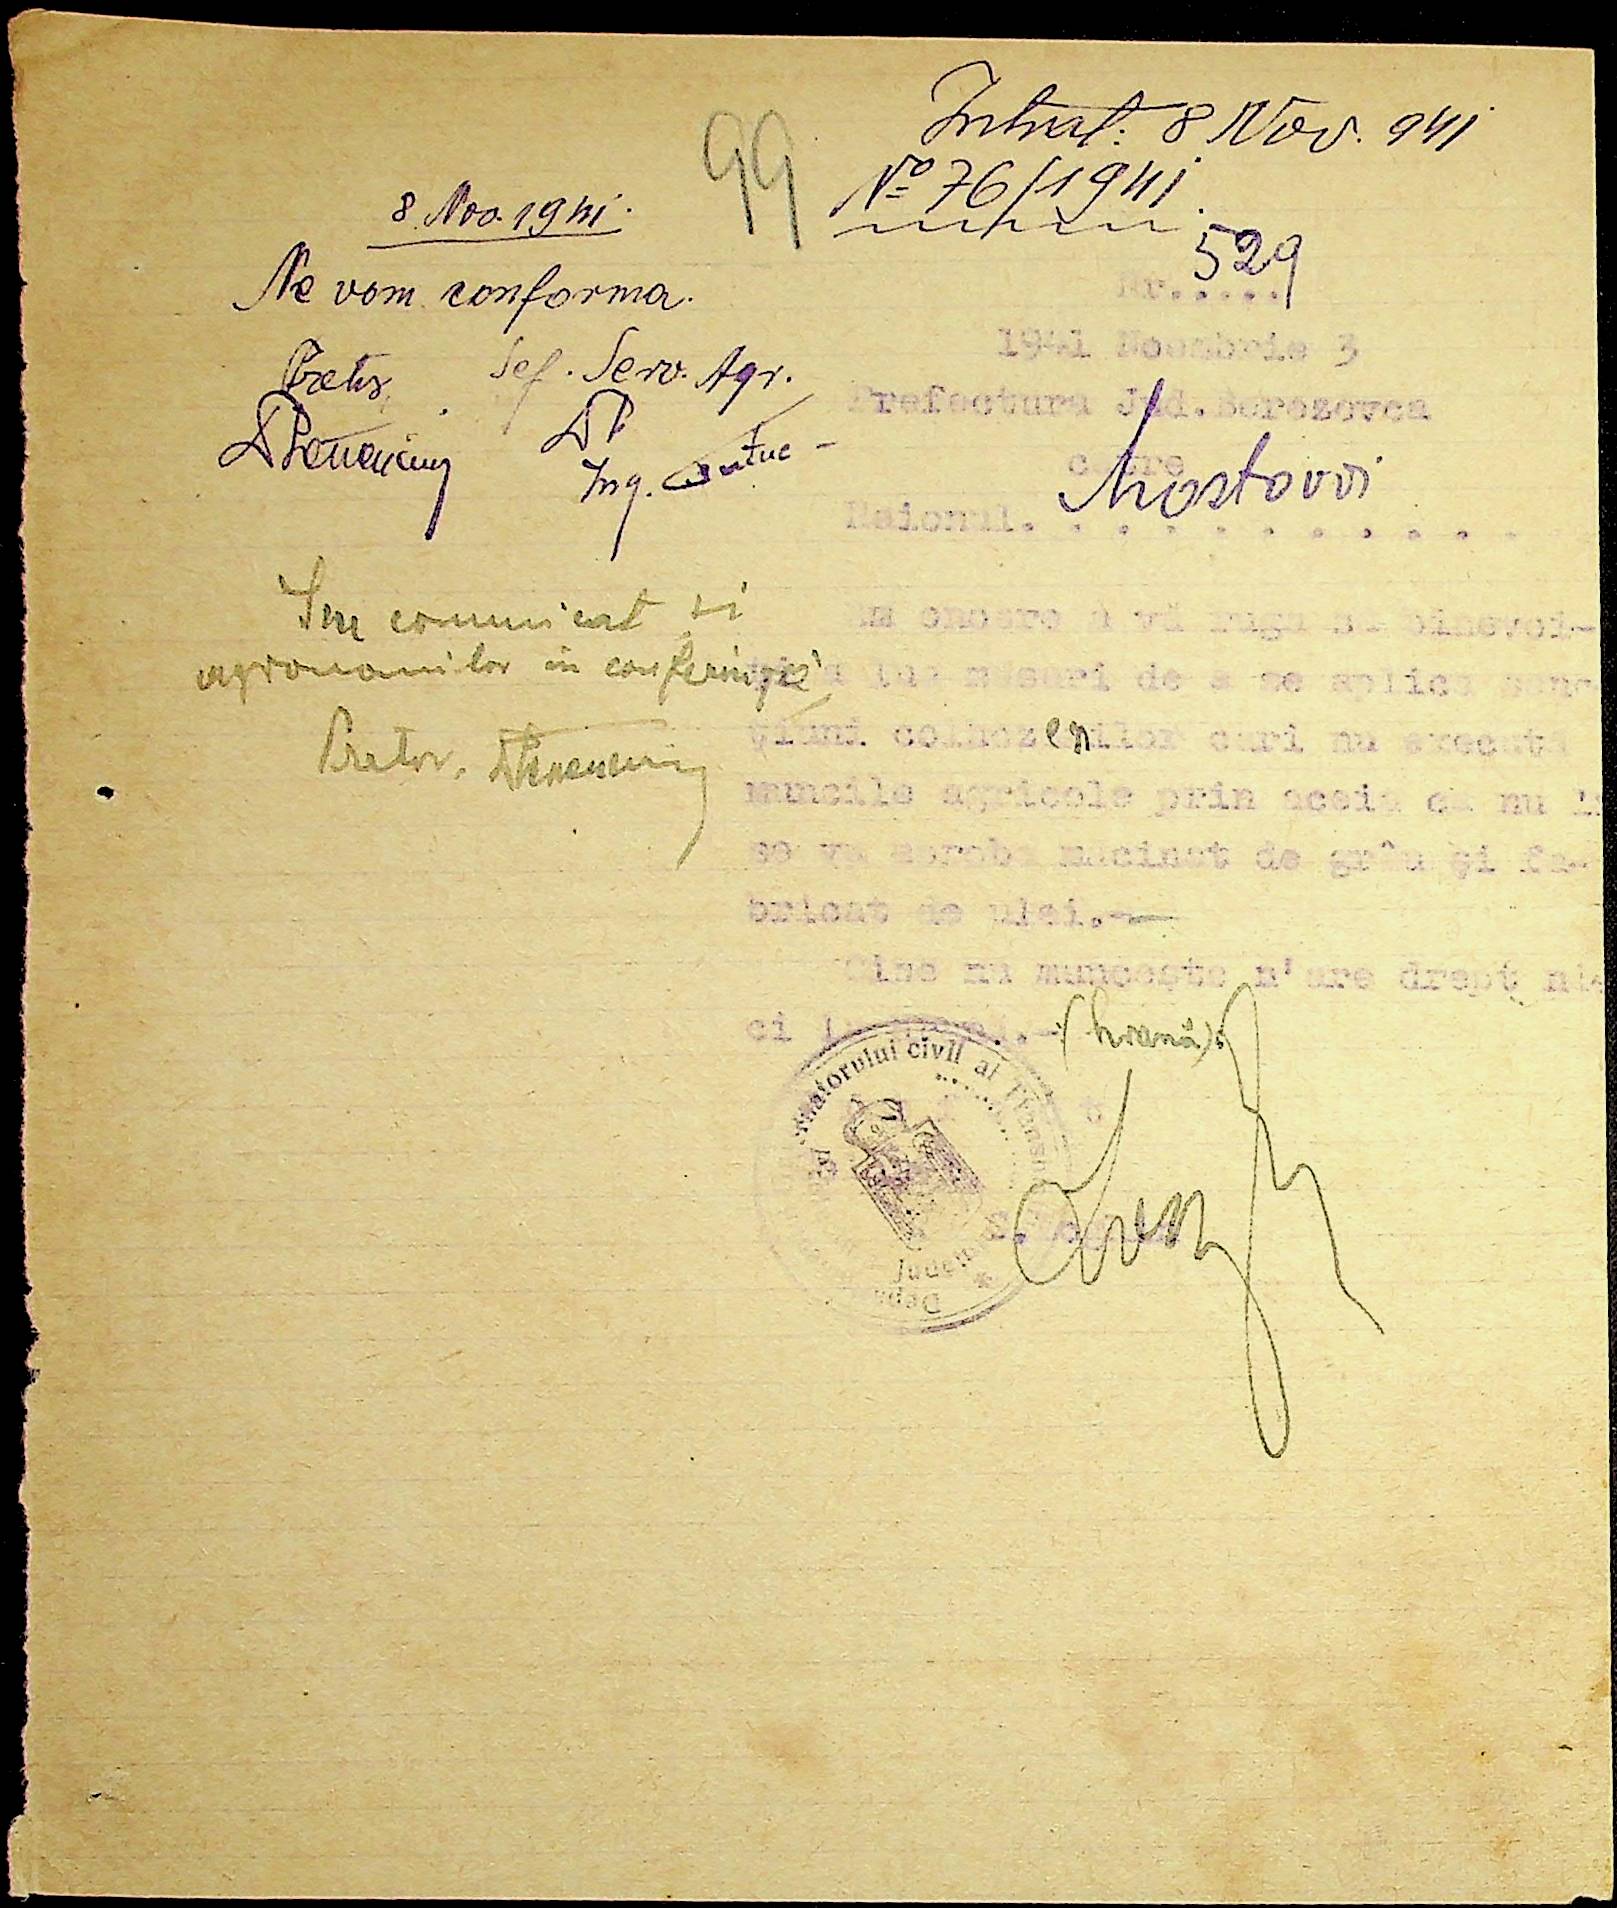 Intrat. 8 Nov. 941
No 76/1941.
99
8. Nov. 1941.
Ne vom conforma.
Pretor, Sef. Serv. Agr.
Ing.
S'au comunicat și
agronomilor in conferință
Pretor,
Nr..... 529
1941 Noembrie 3
Prefectura Jud. Berezovca
catre
Raionul. . . . . . . . . . . Mostovoi
Am onoare a vă ruga sa binevoi-
ți a lua masuri de a se aplica sanc-
țiuni colhoznicilor cari nu executa
muncile agricole prin aceia ca nu li
se va aproba macinat de grâu și fa-
bricat de ulei.-
Cine nu muncește n'are drept nic
ci (hrană).
torului civil al Transn
Județul